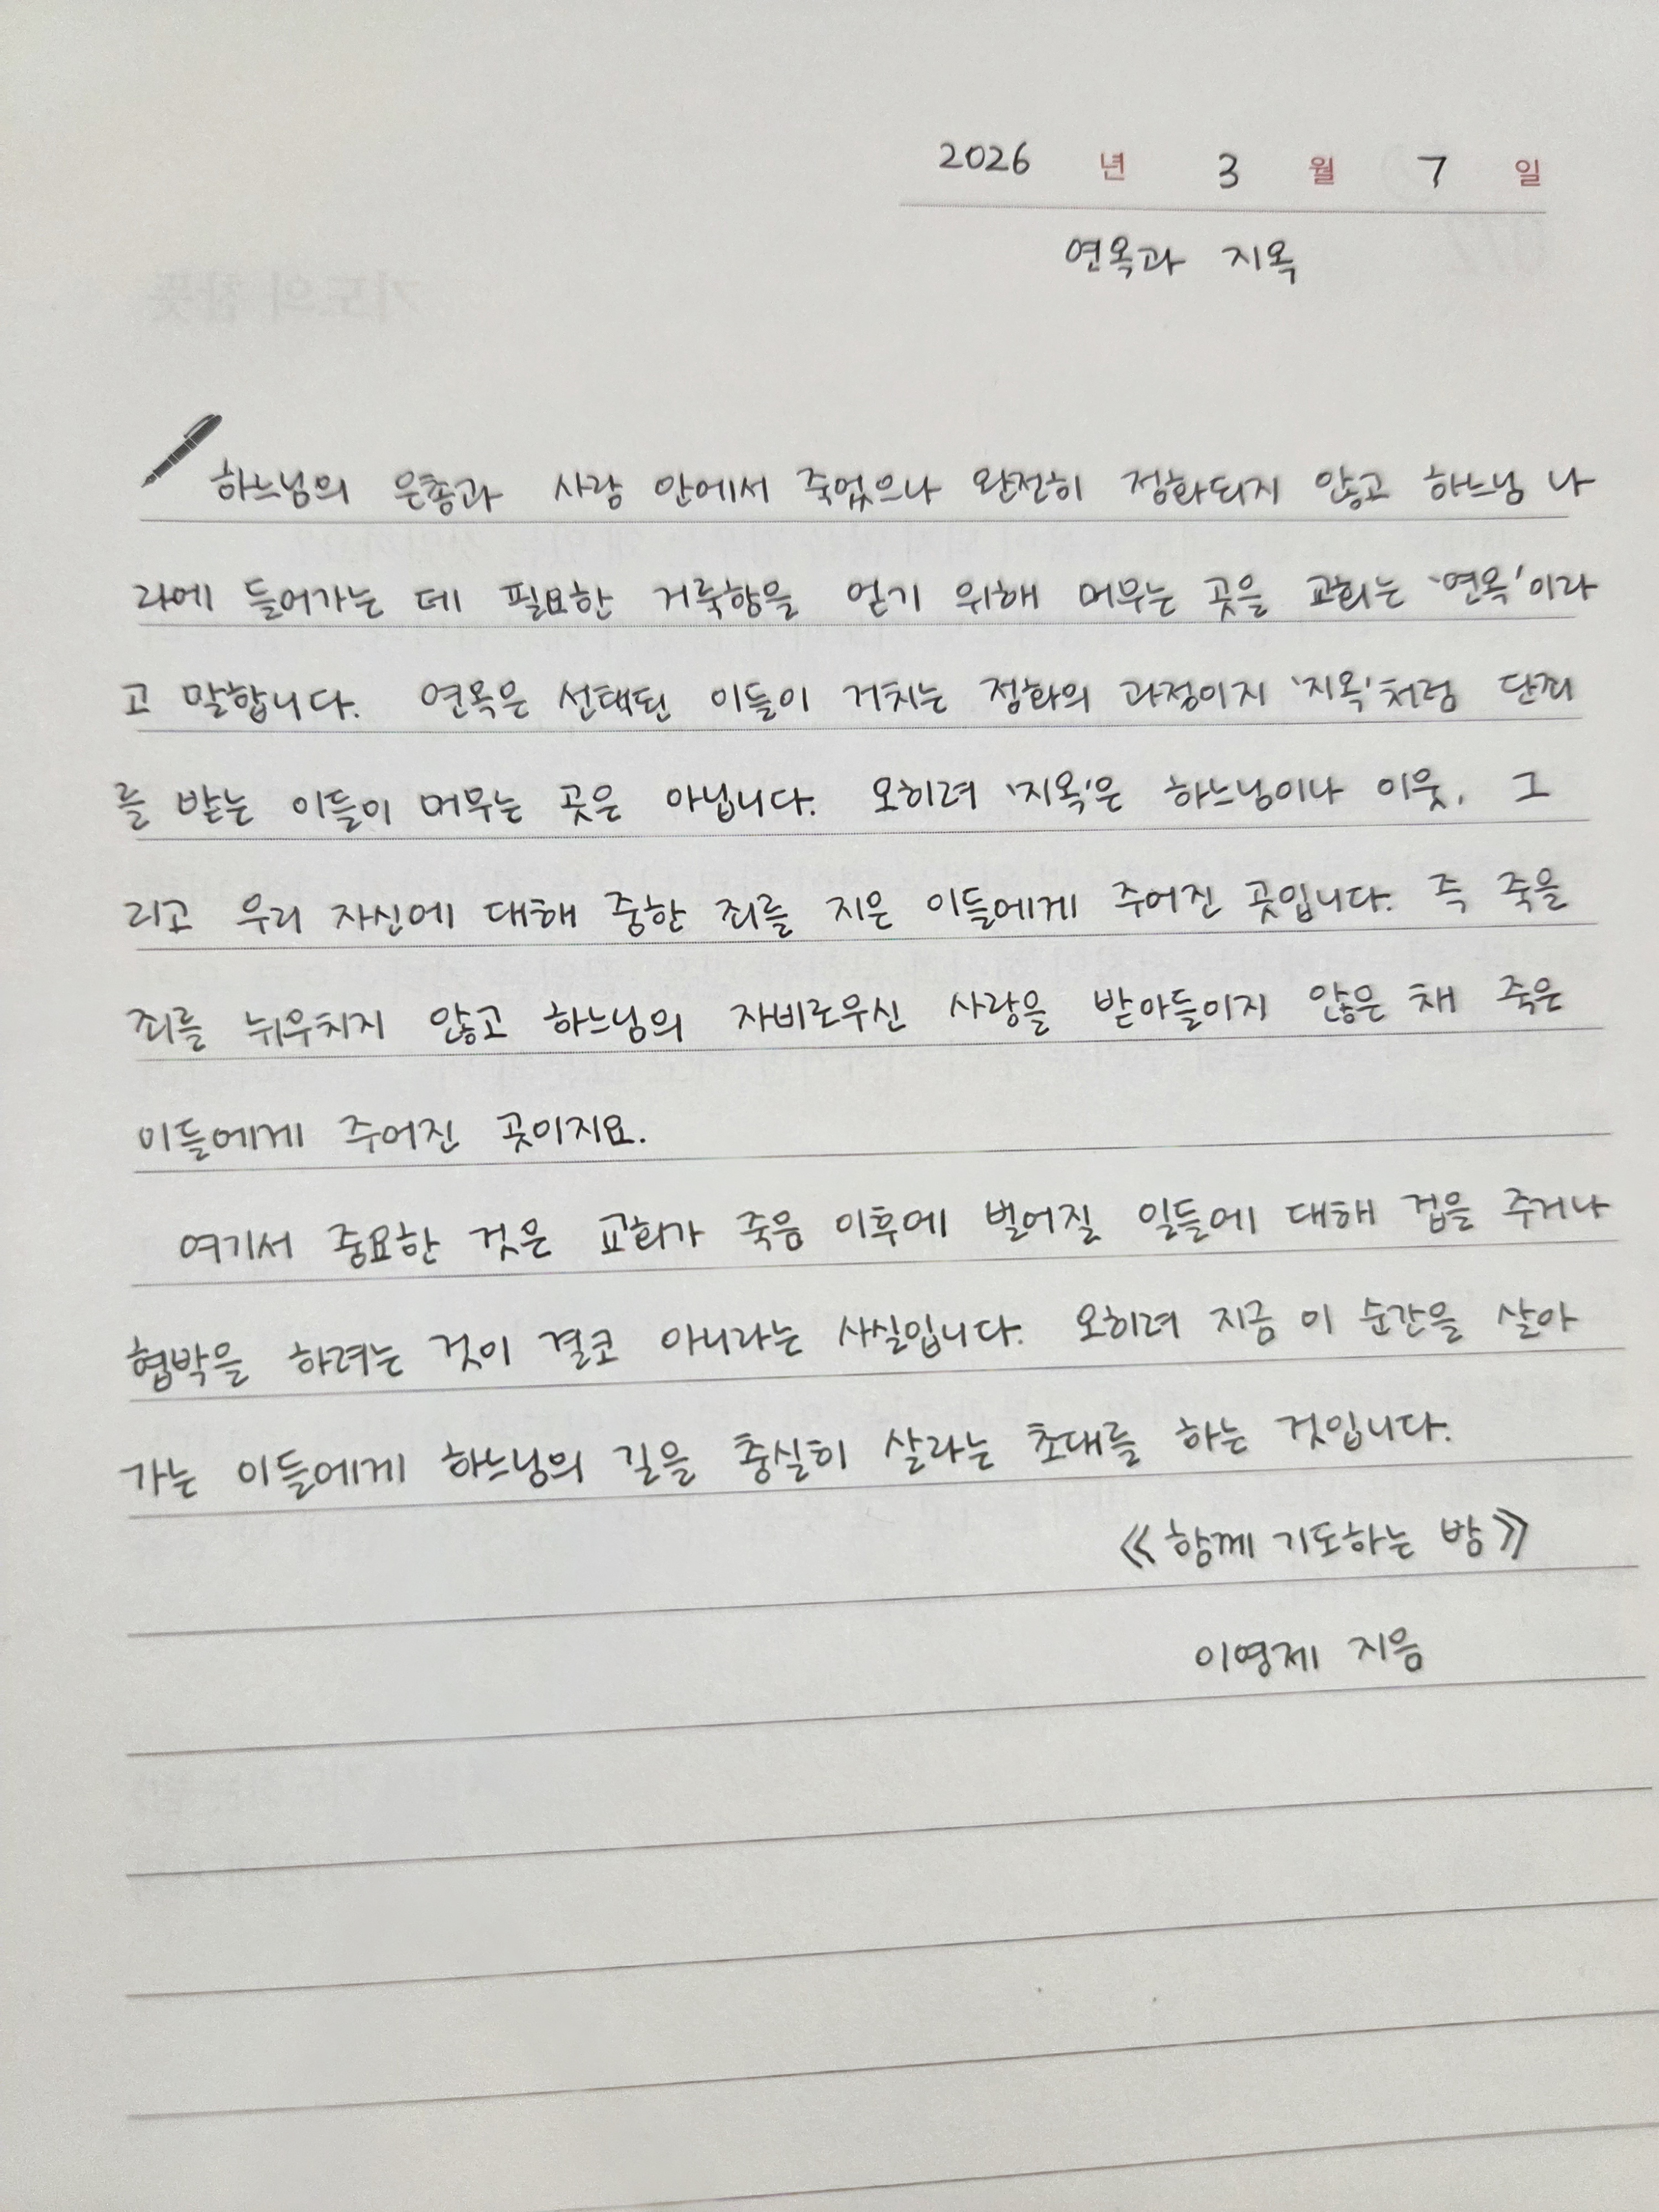 2026 년 3 월 7 일
연옥과 지옥
하느님의 은총과 사랑 안에서 죽었으나 완전히 정화되지 않고 하느님 나
라에 들어가는 데 필요한 거룩함을 얻기 위해 머무는 곳을 교회는 '연옥'이라
고 말합니다. 연옥은 선택된 이들이 거치는 정화의 과정이지 '지옥'처럼 단죄
를 받는 이들이 머무는 곳은 아닙니다. 오히려 '지옥'은 하느님이나 이웃, 그
리고 우리 자신에 대해 중한 죄를 지은 이들에게 주어진 곳입니다. 즉 죽을
죄를 뉘우치지 않고 하느님의 자비로우신 사랑을 받아들이지 않은 채 죽은
이들에게 주어진 곳이지요.
여기서 중요한 것은 교회가 죽음 이후에 벌어질 일들에 대해 겁을 주거나
협박을 하려는 것이 결코 아니라는 사실입니다. 오히려 지금 이 순간을 살아
가는 이들에게 하느님의 길을 충실히 살라는 초대를 하는 것입니다.
《함께 기도하는 밤》
이영제 지음